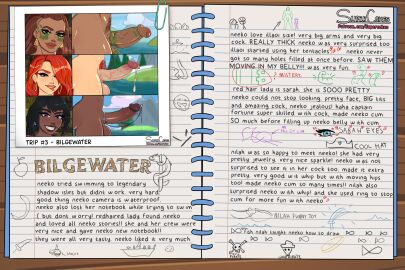 TRIP #3 - BILGEWATER
BILGEWATER
neeko tried swimming to legendary
shadow isles but didnt work. very hard.
good thing neeko camera is waterproof.
neeko also lost her notebook while trying to swim
( but dont worry! redhaired lady found neeko
and loved all neeko stories!! she and her crew were
very nice and gave neeko new notebook!!
they were all very tasty. neeko liked it very much
neeko love illaoi size! very big arms and very big
cock. REALLY THICK neeko was very surprised too
illaoi started using her tentacles neeko never
got so many holes filled at once before. SAW THEM
MOVING IN MY BELLY!!! was very fun.
red hair lady is sarah. she is SOOO PRETTY
neeko could not stop looking. pretty face, BIG tits
and amazing cock. neeko jealous! haha captain
fortune super skilled with cock, made neeko cum
SO much before filling up neeko belly with cum.
SARAH EYES
COOL HAT
nilah was so happy to meet neeko! she had very
pretty jewelry, very nice sparkle! neeko was not
surprised to see it in her cock too. made it extra
pretty. very good w/ whip but with moving hips
too! made neeko cum so many times!! nilah also
surprised neeko with whip! and she used ring to stop
cum for more fun with neeko
nilah taught neeko how to draw